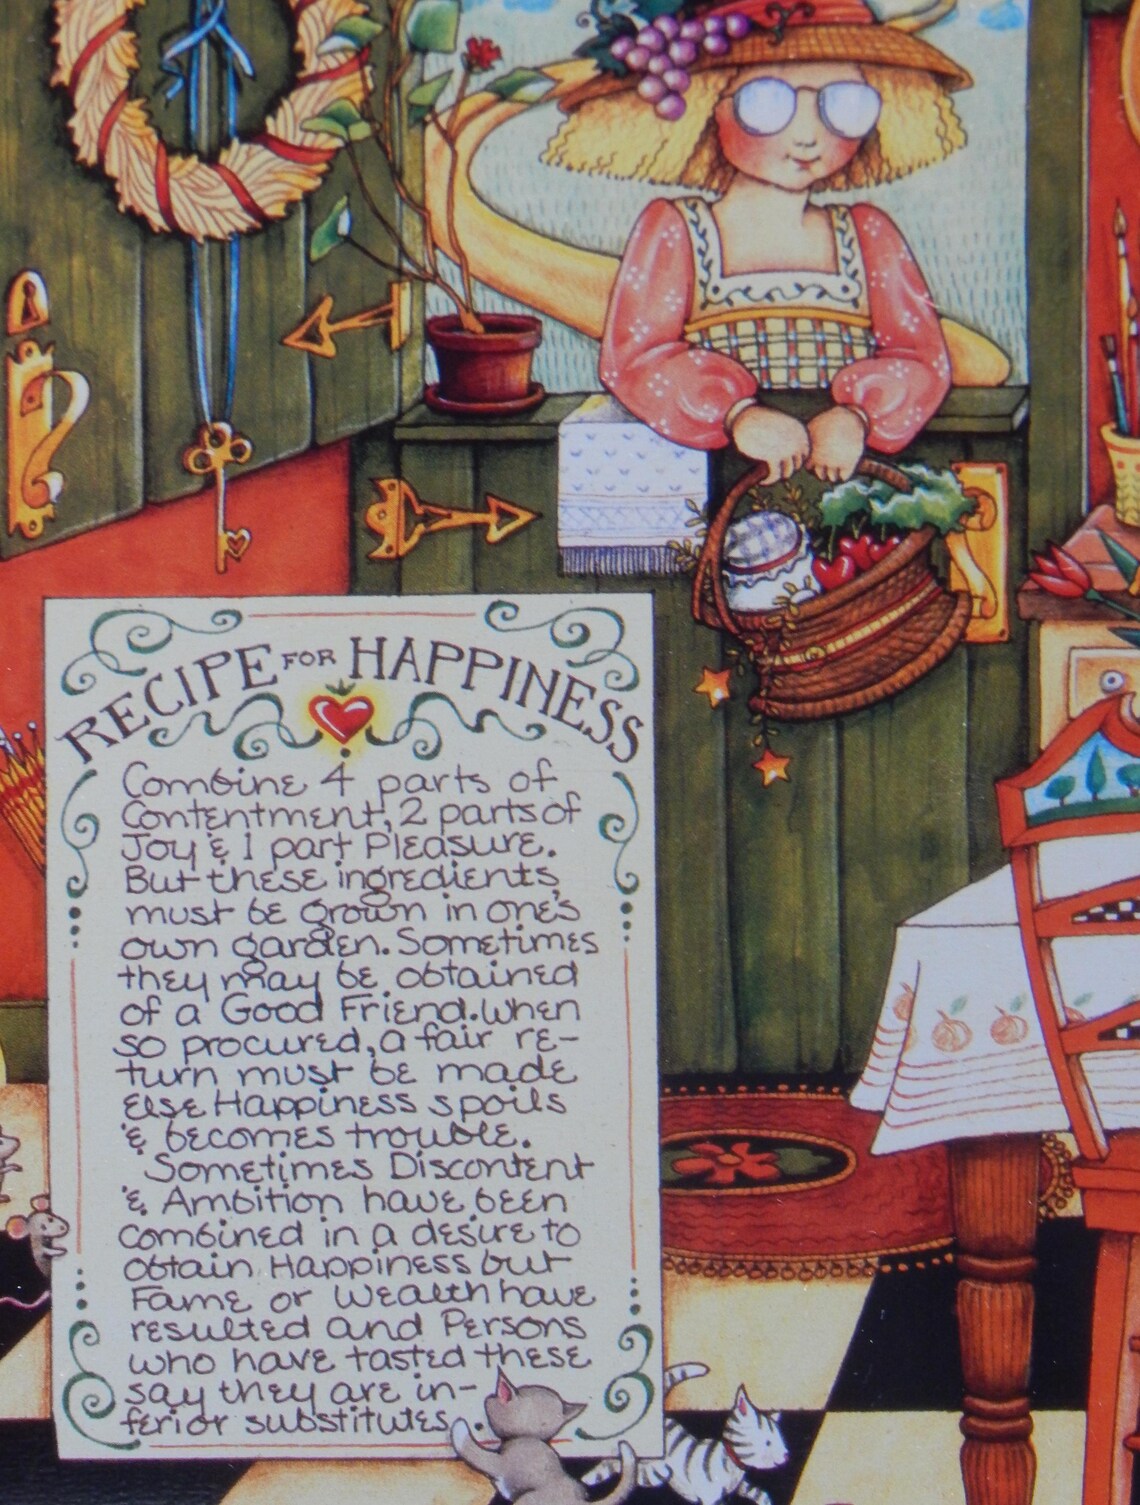 RECIPE FOR HAPPINESS
Combine 4 parts of
Contentment, 2 parts of
Joy & 1 part Pleasure.
But these ingredients
must be grown in one's
own garden. Sometimes
they may be obtained
of a Good Friend. When
so procured, a fair re-
turn must be made
else Happiness spoils
& becomes trouble.
Sometimes Discontent
& Ambition have been
combined in a desire to
obtain Happiness but
Fame or Wealth have
resulted and Persons
who have tasted these
say they are in-
ferior substitutes.